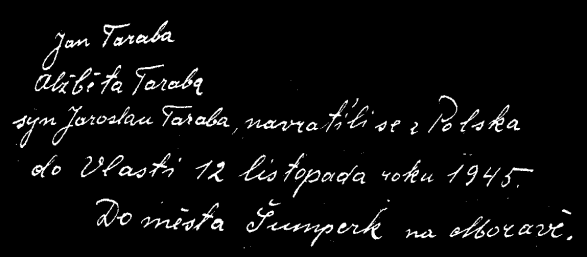 Jan Taraba
Alžběta Taraba
syn Jaroslau Taraba, navratíli se z Polska
do Vlasti 12 listopada roku 1945.
Do města Šumperk na Moravě.